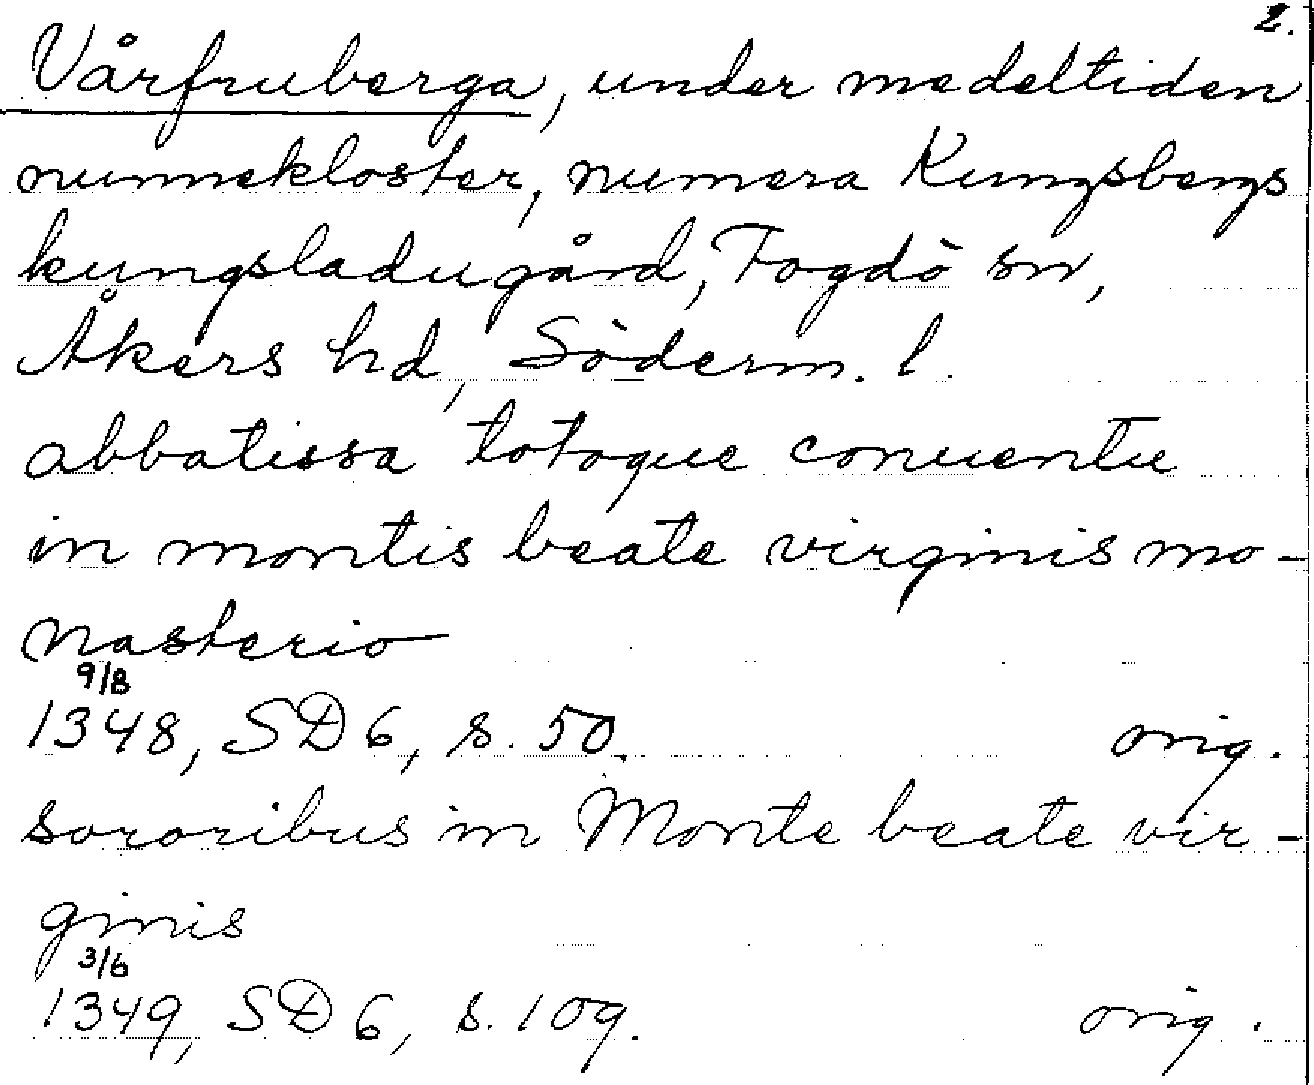 2.
Vårfruberga, under medeltiden
nunnekloster, numera Kungsbergs
kungsladugård, Fogdö sn,
Åkers hd, Söderm. l.
abbatissa totoque conuentu
in montis beate virginis mo-
nasterio
9/8
1348, SD 6, s. 50.
orig.
sororibus in Monte beate vir-
ginis
3/6
1349, SD 6, s. 109.
orig.